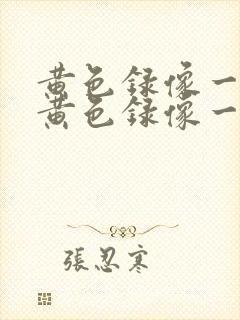 黄色録像一
黄色録像一
張忍寒